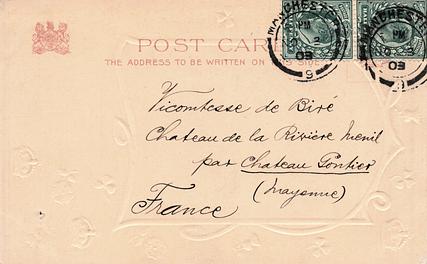 POST CARD
THE ADDRESS TO BE WRITTEN ON THIS SIDE
MANCHESTER
PM
03
9
MANCHESTER
PM
03
9
Vicomtesse de Biré
Chateau de la Rivière Menil
par Chateau Gontier
(Mayenne)
France